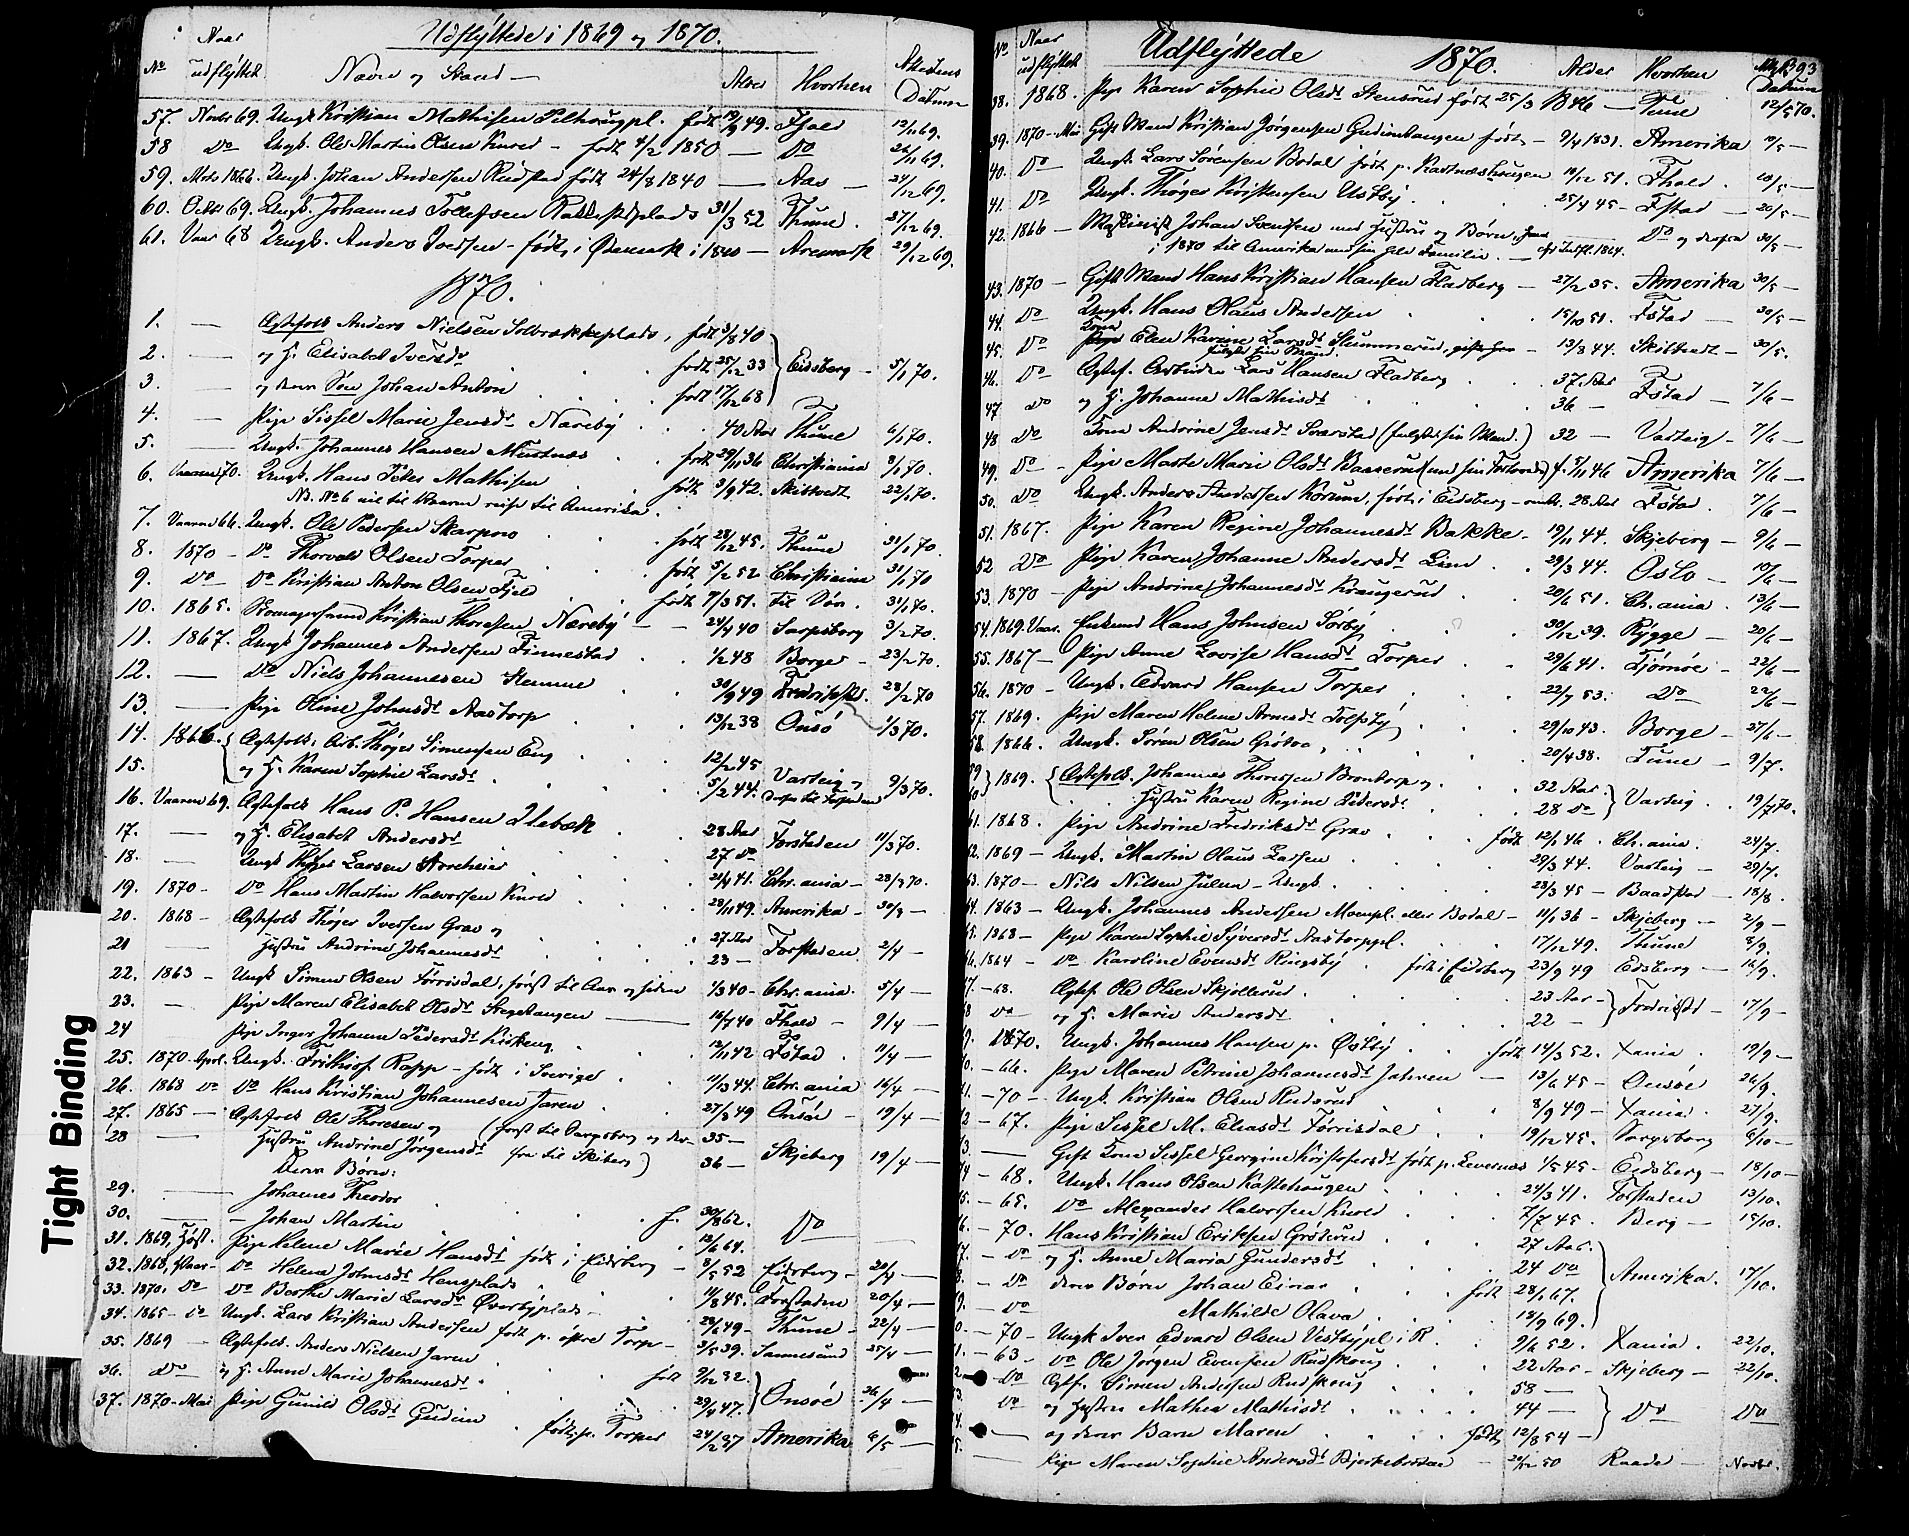 Udflyttede i 1869 og 1870.
No Naar udflyttet Navn og Stand Alder Hvorhen Attestens Datum
57. Novbr 69. Ungk. Kristian Mathisen født 19/9 49. Fhald 12/11 69.
58 Do Ungk. Ole Martin Olsen Knred - født 4/2 1850 — Do 26/11 69.
59. 1866. Ungk. Johan Andersen Rudstad født 24/8 1840 — Aas — 24/12 69.
60. Octbr 69. Ungk. Johannes Tollefsen Rakkestadplads 31/3 52 Thune. 27/12 69.
61. Vaar 68 Ungk. Anders Iversen - født i 1840 — Aremark 29/12 69.
1870.
1. — Ægtefolk Anders Nielsen Solbrækkeplads, født 3/8 40
2. — og H. Elisabet Iversdt født 25/12 33 Eidsberg — 5/1 70.
3. — og deres Søn Johan Anton født 17/12 68
4. — Pige Sissel Marie Jensdt Næreby 40 Aar Thune 6/1 70.
5. — Ungk. Johannes Hansen født 29/11 36 Christiania 8/1 70.
6. Vaaren 70. Ungk. Hans Peter Mathisen født 3/9 42. Skiptvedt 22/1 70.
NB. No 6 vil til Vaaren reise til Amerika.
7. Vaaren 66. Ungk. Ole Pedersen Skarpsno født 28/12 45. Thune 31/1 70.
8. 1870 — Do Thorvald Olsen Torper født 5/2 52 Christiania 31/1 70
9. Do Do Kristian Anton Olsen Fjeld født 7/3 51. til Søn. 31/1 70.
10. 1865. Kristian Thoresen Næreby — 24/4 40 Sarpsborg 3/2 70.
11. 1867. Ungk Johannes Andersen Finnestad 1/2 48 Borge — 23/2 70.
12. — Do Niels Johannesen Remme 30/9 49 Fredrikst. 28/2 70
13. — Pige Oline Johnsdt Aastorp 13/12 38 Onsø 1/3 70.
14. 1866. Ægtefolk, Arb. Thøger Simensen Eng 12/2 45
15. og H. Karen Sophie Larsdt 5/2 44. Varteig og 9/3 70.
16. Vaaren 69. Ægtefolk Hans P. Hansen Ilebæk 28 Aar
17. — og H. Elisabet Andersdt 27 Do Forstaden 11/3 70.
18. — Ungk Thøger Larsen 21/4 41. Chr.ania — 28/3 70.
19. 1870 — Do Hans Martin Halvorsen Knold 28/11 49. Amerika — 30/3 —
20. 1868 — Ægtefolk Thøger Iversen Grav og 27 Aar
21 — Hustru Andrine Johannesdt 23 — Forstaden 2/4 —
22. 1863 — Ungk Simen Olsen Tørrisdal, først til Aas og siden 1/3 40 — Chr.ania. 5/4 —
23. — Pige Maren Elisabet Olsdt Stegehaugen 16/7 40 Fhald — 9/4 —
24 Pige Inger Johanne Pedersdt Kirkeng 12/11 42 Fstad. 11/4 —
25. 1870. April. Ungk. Frithiof Rapp — født i Sverige 44. Chr.ania 16/4 —
26. 1868 Do Do Hans Kristian Johannesen Jaren 27/3 49 Onsø — 19/4 —
27. 1865 — Ægtefolk Ole Thoresen og (først til Sarpsborg og der- 35 —
28 — Hustru Andrine Jørgensdt fra til Skiberg) 36 — Skjeberg 19/4 —
Deres Børn:
29. — Johannes Theodor
30. — Johan Martin f. 30/8 62. Do
31. 1869, Høst. Pige Helene Marie Hansdt født i Eidsberg 13/6 64. —
32. 1868, Do Helene Johnsdt Hengplads 8/5 52 Eidsberg — 20/4 —
33. 1870. Do Do Berthe Marie Larsdt Øverbyplads — 11/8 45. Forstaden 20/4 —
34. 1865 — Do Ungk. Lars Kristian Andersen født p. øfre Torp — 28/6 49 — Thune — 22/4 —
35. 1869 Ægtefolk. Anders Nielsen Jaren 3/5 39. Sannesund 25/4 —
36. Do og H. Anne Marie Johannesdt født 9/12 32.
37. 1870 — Mai Pige Gunild Olsdt Gudim 29/4 47. Onsøe 26/4 —
født p. Torper 24/2 37 Amerika 6/5 —
Tight Binding
No Naar udflyttet Udflyttede 1870. Alder Hvorhen Attest. Datum 93
38. 1868. Pige Karen Sophie Olsdt Stensrud født 25/3 1846 — Tune 12/5 70.
39. 1870 — Mai Gift Mand Kristian Jørgensen Gudimhaugen født — 9/4 1831. Amerika 10/5 —
40. Do Ungk. Lars Sørensen Bodal født p. Kastnæshaugen 10/12 51. Fhald. 18/5 —
41. Do Ungk. Thøger Kristensen Ustby 25/4 45 — Fstad — 20/5 —
42. 1866 — Maskinist Johan Svensen med Hustru og Børn, Do og derfra 30/5 —
i 1870 til Amerika med sin hele Familie. — 1864.
43. 1870 — Gift Mand Hans Kristian Hansen Fladberg — 27/2 35. Amerika 30/5 —
44. Do Ungk. Hans Olaus Andersen 15/10 51. Fstad — 30/5 —
45. Do Kone Elen Karine Larsdt Slummerud, gift 13/8 44. Skibtvedt — 30/5.
følger sin Mand.
46. Do Ægtef. Arbeider Lars Hansen Fladberg 37 Aar
47. Do og H. Johanne Mathisdt 36 — Fstad — 7/6 —
48 Do Kone Andrine Jensdt Svarstad (følger sin Mand.) 32 — Varteig — 7/6 —
49. Do — Pige Marte Marie Olsdt Basserud (med sin Forlovede) f. 5/11 46 Amerika 7/6 —
50. Do Ungk. Anders Andersen Korum, født i Eidsberg — omtr. 28 Aar Fstad. 7/6 —
51. 1867. Pige Karen Regine Johannesdt Bakke — 19/11 44. Skjeberg — 9/6 —
52 Do Pige Karen Johanne Andersdt Lien 29/3 44. Oslo — 10/6 —
53. 1870 — Pige Andrine Johannesdt Krangerud 20/6 51. Ch.ania. 13/6 —
54. 1869. Vaar. Enkemd Hans Johnsen Sørby 30/12 39. Rygge — 20/6 —
55. 1867 — Pige Anne Lovise Hansdt Torper 29/6 41. Tjømøe — 22/6 —
56. 1870 — Ungk. Edvard Hansen Torper 22/7 53. Do — 22/6 —
57. 1869. Pige Maren Helene Arnesdt Tolfsby 29/10 43. Borge — 27/6 —
58. 1866. Ungk. Søren Olsen Grøtvd 20/4 38. Tune — 9/7.
59 1869. Ægtefolk. Johannes Thoresen Brontorp og 32 Aar.
60 Hustru Karen Regine Pedersdt 28 Do Varteig. 19/7 70.
61. 1868. Pige Andrine Fredriksdt Grav født 12/1 46. Ch.ania. 24/7.
62. 1869 — Ungk. Martin Olaus Larsen 29/3 44. Varteig — 29/7.
63. 1870 — Nils Nilsen Julen — Ungk. 23/3 45 — Baadstad — 18/8.
64. 1863 — Ungk. Johannes Andersen Moenpl. eller Bodal — 11/1 36 — Skjeberg — 2/9 —
65. 1868 — Pige Karen Sophie Syversdt Aastorppl. 17/12 49. Thune 8/9
66. 1864 — Do Karoline Evensdt Ringsby. født i Eidsberg 23/9 49 Edsberg — 16/9.
67. — 68. Ægtef. Ole Olsen Skjollerud 23 Aar —
68 Do og H. Marie Andersdt 22 — Fredrikstd — 17/9 —
69. 1870. Ungk. Johannes Hansen p. Østby født 14/3 52. Xania. 19/9 —
70. — 66. Pige Maren Petrine Johannesdt Jahren — 13/6 45 — Onsøe 26/9.
71 — 70 — Ungk. Kristian Olsen Rudsrud 8/9 49 — Xania. 27/9.
72 — 67. Pige Sissel M. Eliasdt Tørrisdal 19/12 45. Sarpsborg 6/10 —
73. — Gift Kone Sissel Georgine Kristofersdt født p. Levernæs 1/5 45 — Eidsberg — 18/10 —
74 — 68. Ungk. Hans Olsen Kastehaugen 24/3 41. Forstaden 13/10.
75. — 65. Do Alexander Halvorsen Knold 7/7 45. Berg — 15/10.
76. — 70. Hans Kristian Eriksen Grøterud 27 Aar.
77. — Do og H. Anne Maria Gundersdt 24 Do
78. — Do deres Børn Johan Einar født 28/1 67. Amerika. 17/10.
79. — Do Mathilde Olava 14/9 69.
80. — 70 — Ungk Iver Edvard Olsen Vestbypl i R. 9/6 52. Xania. 22/10.
81. — 63 — Do Ole Jørgen Evensen Rudskoug 22 Aar — Skjeberg — 22/10.
82 — Do Ægtf. Simen Andersen Rudskoug 58 —
83. Do og Hustru Mathea Mathisdt 44 — Do Do
84. — og deres Barn Maren født 12/8 54 —
85. — Pige Maren Sophie Andersdt 50 Raade — Novbr.